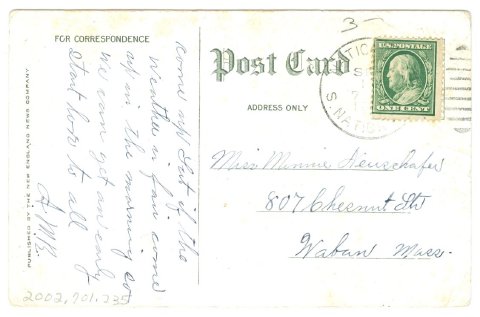 FOR CORRESPONDENCE
come up Sat if the
weather is fair come
up in the morning so
we can get an early
start love to all of
A.M.B.
PUBLISHED BY THE NEW ENGLAND NEWS COMPANY.
2002.701.235
3
Post Card
ADDRESS ONLY
NATICK
S. NATICK
U.S. POSTAGE
ONE CENT
Miss Minnie Neuschafer
807 Chesnut Str
Waban Mass.